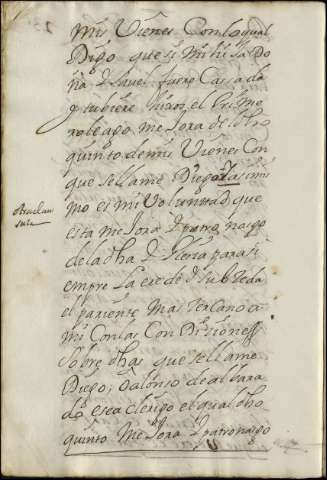 mis Vienes Con lo qual
Digo que si mi hija Do
ña Ysauel fuere Cassada
y tubiere hijos, el Prime
ro le ago mejora de otro
quinto de mis Vienes Con
que se llame Diego Yasimis
mo es mi Voluntad, que
esta mejora y patronasgo
de la dha
para si
empre
el pariente Mas Sercano a
mi Con las Con Disiones
Sobre dhas que se llame
Diego, o alonso de albara
do, o sea clerigo el qual dho
quinto Mejora y patronasgo